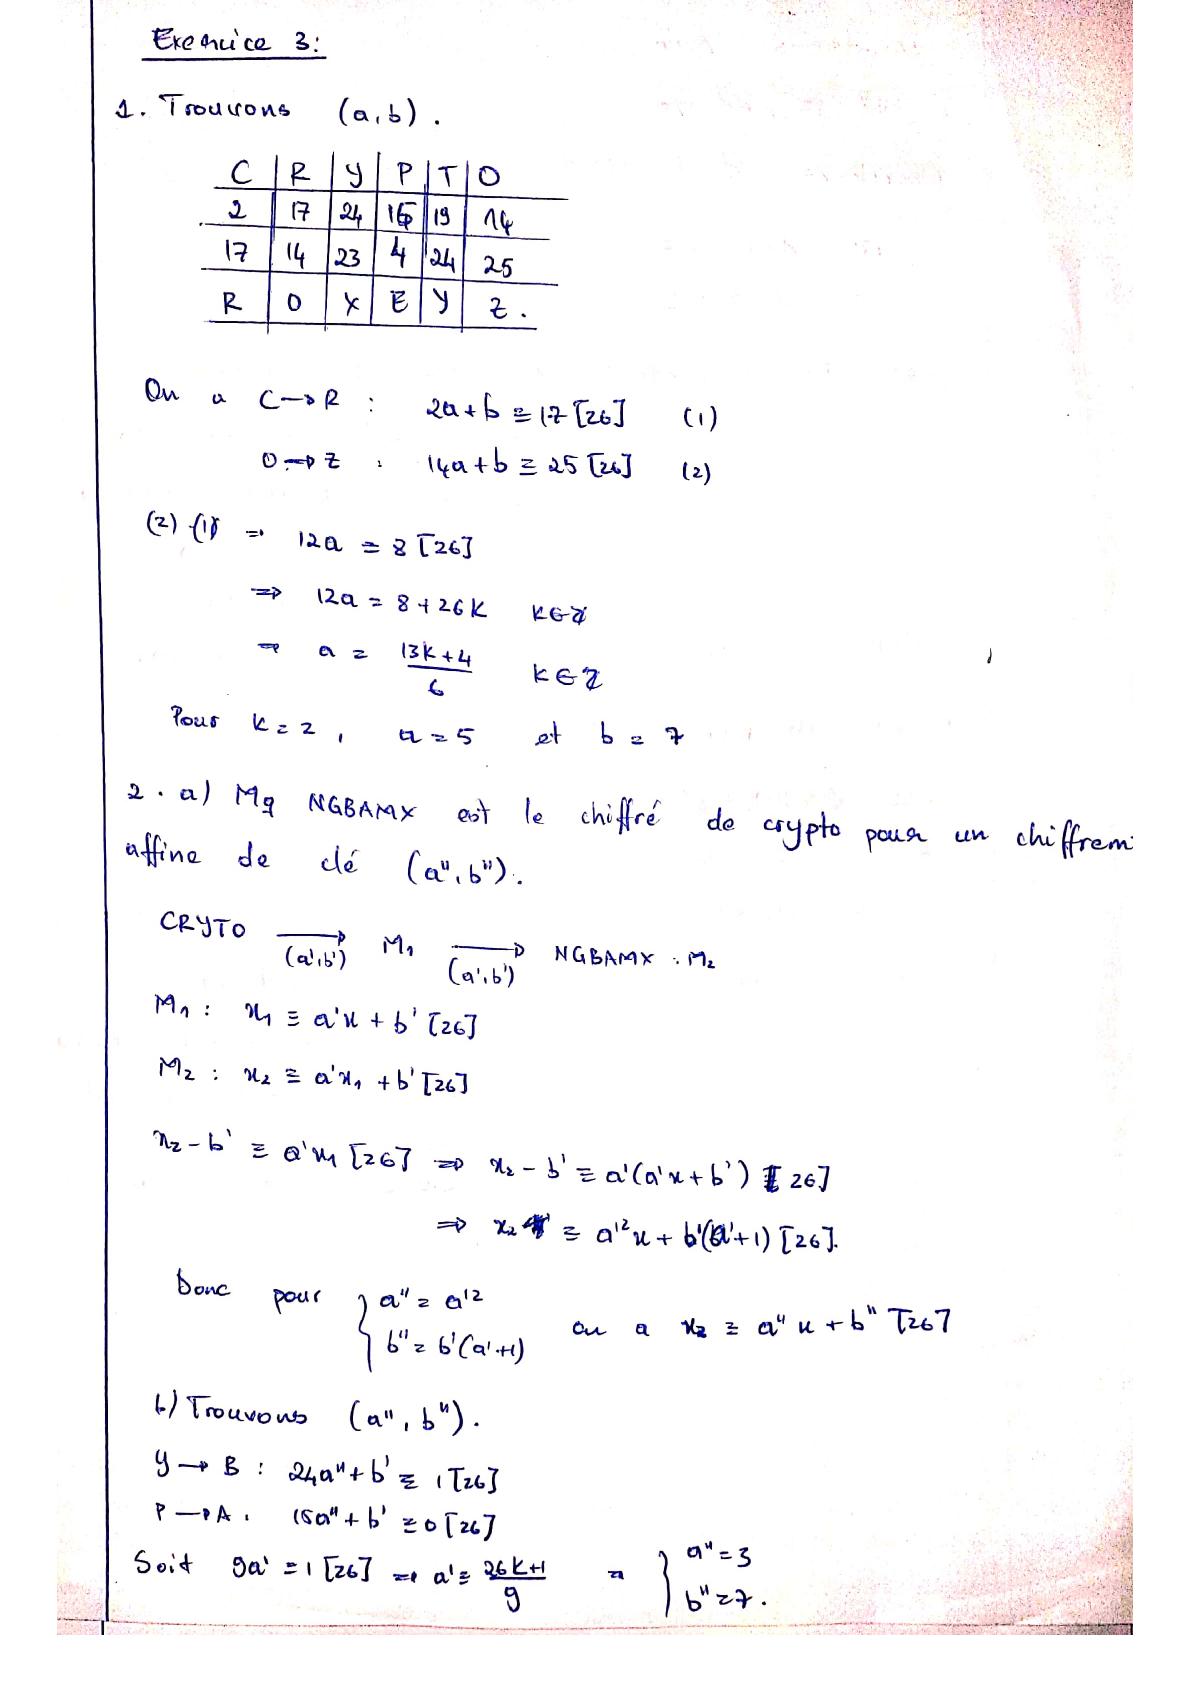 Exercice 3:
1. Trouvons (a,b).
C | R | Y | P | T | O
2 | 17 | 24 | 15 | 19 | 14
17 | 14 | 23 | 4 | 24 | 25
R | O | X | E | Y | Z.
On a C→R : 2a+b ≡ 17 [26] (1)
O→Z : 14a+b ≡ 25 [26] (2)
(2)-(1) ⇒ 12a ≡ 8 [26]
⇒ 12a = 8+26K K∈Z
⇒ a = (13K+4)/6 K∈Z
Pour K=2, a=5 et b=7
2. a) Mq NGBAMX est le chiffré de crypto pour un chiffrem
affine de clé (a'',b'').
CRYTO →(a',b') M1 →(a',b') NGBAMX : M2
M1 : x1 ≡ a'x + b' [26]
M2 : x2 ≡ a'x1 + b' [26]
x2 - b' ≡ a'x1 [26] ⇒ x2 - b' ≡ a'(a'x + b') [26]
⇒ x2 ≡ a'²x + b'(a'+1) [26].
Donc pour { a'' = a'² ; b'' = b'(a'+1) on a x2 ≡ a''x + b'' [26]
b) Trouvons (a'', b'').
Y → B : 24a'' + b' ≡ 1 [26]
P → A : 15a'' + b' ≡ 0 [26]
Soit 9a' = 1 [26] ⇒ a' = (26K+1)/9 ⇒ { a'' = 3 ; b'' = 7.